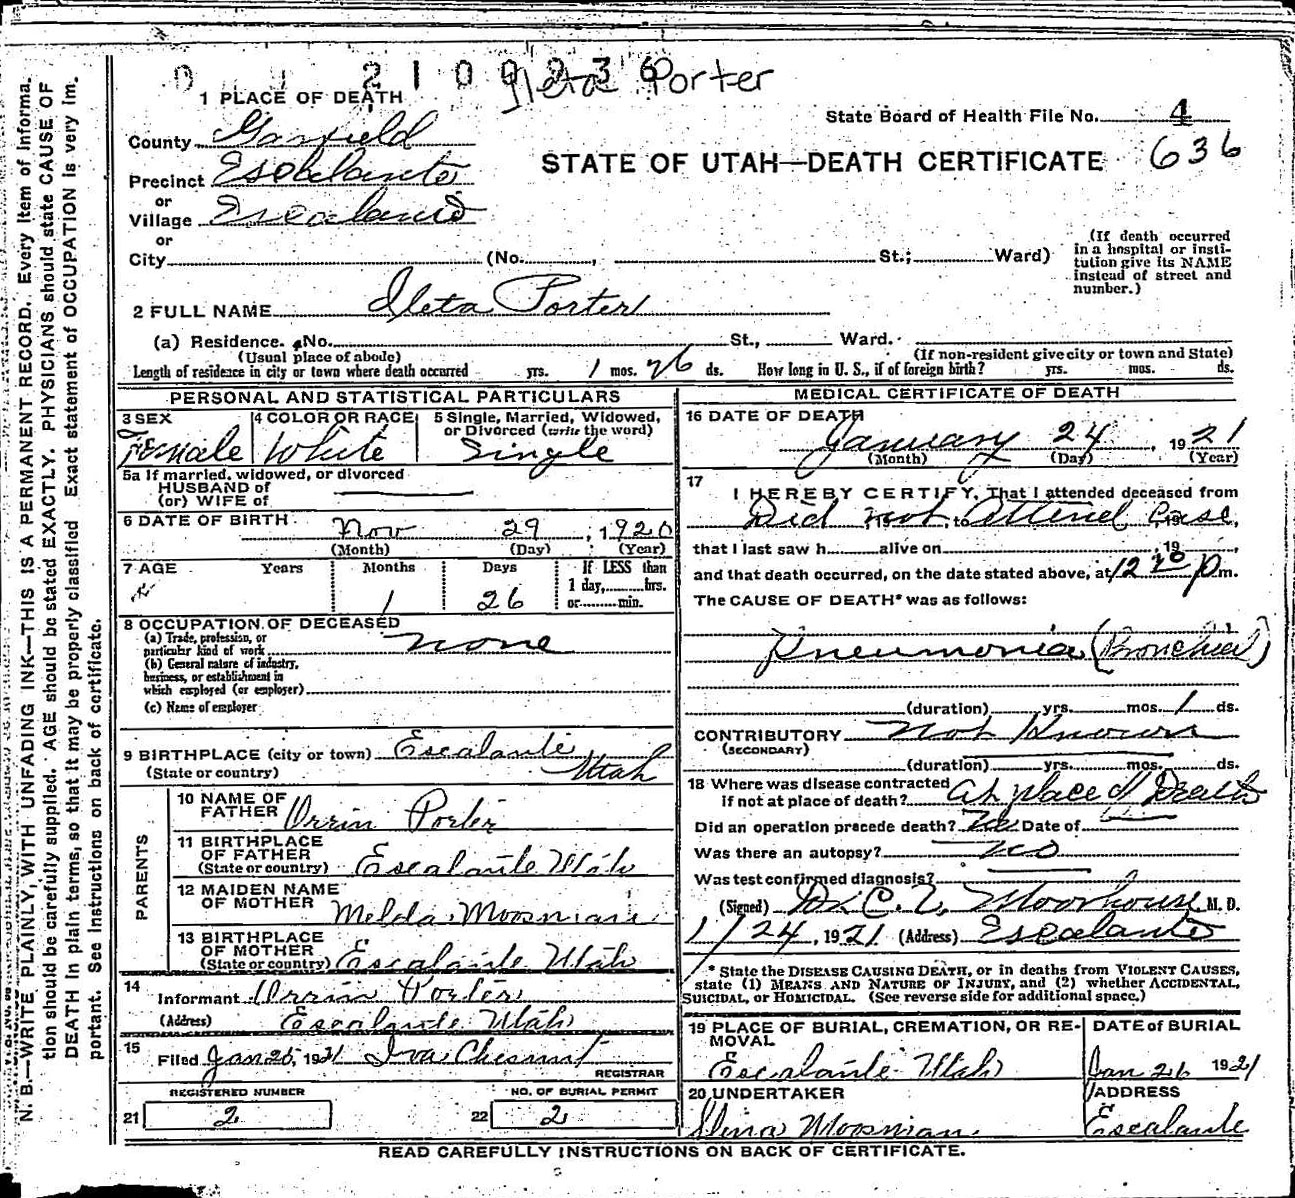 0 1 2 1 0 0 2 3 6
Ileta Porter
1 PLACE OF DEATH
State Board of Health File No. 4
County Garfield
STATE OF UTAH—DEATH CERTIFICATE 636
Precinct Escalante
or
Village Escalante
or
City (No. , St.; Ward)
(If death occurred in a hospital or institution give its NAME instead of street and number.)
2 FULL NAME Ileta Porter
(a) Residence. No. St., Ward.
(Usual place of abode) (If non-resident give city or town and State)
Length of residence in city or town where death occurred yrs. 1 mos. 26 ds. How long in U. S., if of foreign birth? yrs. mos. ds.
PERSONAL AND STATISTICAL PARTICULARS
3 SEX 4 COLOR OR RACE 5 Single, Married, Widowed, or Divorced (write the word)
Female White Single
5a If married, widowed, or divorced
HUSBAND of
(or) WIFE of
6 DATE OF BIRTH Nov 29, 1920
(Month) (Day) (Year)
7 AGE Years Months Days If LESS than
1 day, hrs.
or min.
1 26
8 OCCUPATION OF DECEASED
(a) Trade, profession, or
particular kind of work none
(b) General nature of industry,
business, or establishment in
which employed (or employer)
(c) Name of employer
9 BIRTHPLACE (city or town) Escalante
(State or country) Utah
PARENTS
10 NAME OF FATHER Orrin Porter
11 BIRTHPLACE OF FATHER
(State or country) Escalante Utah
12 MAIDEN NAME OF MOTHER Melda Moosman
13 BIRTHPLACE OF MOTHER
(State or country) Escalante Utah
14 Informant Orrin Porter
(Address) Escalante Utah
15 Filed Jan 26, 1921 Iva Chesnut
REGISTRAR
REGISTERED NUMBER NO. OF BURIAL PERMIT
21 2 22 2
MEDICAL CERTIFICATE OF DEATH
16 DATE OF DEATH
January 24, 1921
(Month) (Day) (Year)
17 I HEREBY CERTIFY, That I attended deceased from
Did not attend Case,
that I last saw h alive on , 19 ,
and that death occurred, on the date stated above, at 12 p m.
The CAUSE OF DEATH* was as follows:
Pneumonia (Bronchial)
(duration) yrs. mos. 1 ds.
CONTRIBUTORY Not Known
(SECONDARY)
(duration) yrs. mos. ds.
18 Where was disease contracted
if not at place of death? At place of Death
Did an operation precede death? No Date of
Was there an autopsy? no
Was test confirmed diagnosis?
(Signed) Dr C. Moorhouse M. D.
1/24, 1921 (Address) Escalante
* State the DISEASE CAUSING DEATH, or in deaths from VIOLENT CAUSES,
state (1) MEANS AND NATURE OF INJURY, and (2) whether ACCIDENTAL,
SUICIDAL, or HOMICIDAL. (See reverse side for additional space.)
19 PLACE OF BURIAL, CREMATION, OR REMOVAL DATE of BURIAL
Escalante Utah Jan 26 1921
20 UNDERTAKER ADDRESS
Moosman Escalante
READ CAREFULLY INSTRUCTIONS ON BACK OF CERTIFICATE.
N. B.—WRITE PLAINLY, WITH UNFADING INK—THIS IS A PERMANENT RECORD. Every item of informa-
tion should be carefully supplied. AGE should be stated EXACTLY. PHYSICIANS should state CAUSE OF
DEATH in plain terms, so that it may be properly classified. Exact statement of OCCUPATION is very im-
portant. See instructions on back of certificate.